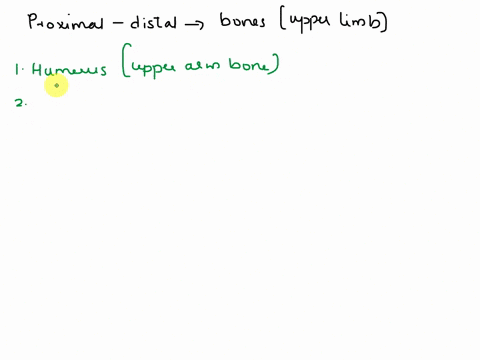 Proximal – distal → bones [upper limb]
1. Humerus [upper arm bone)
2.